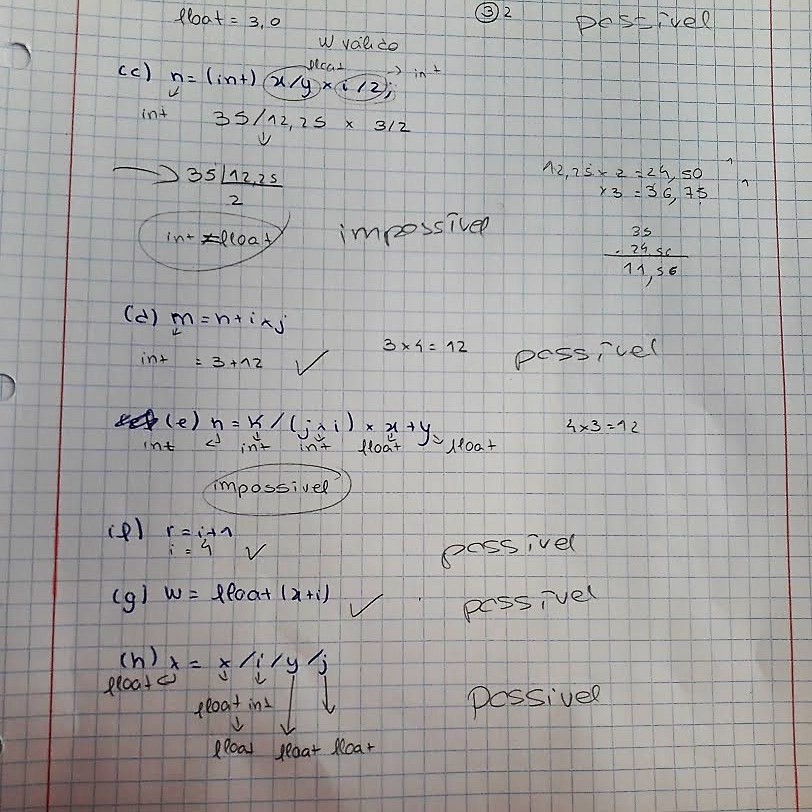 float = 3,0
③ 2
possível
W válido
float
(c) n = (int) x/y × i/2; → int
int
35/12,25 × 3/2
→ 35 |12,25
2
int ≠ float
impossível
12,25 × 2 = 24,50
×3 = 36,75
35
11,56
(d) m = n + i × j
int = 3 + 12 ✓
3 × 4 = 12
possível
(e) n = k / (j × i) × x + y
4 × 3 = 12
int int int float float
impossível
(f) r = i + 1
i = 4 ✓
possível
(g) W = float (x + i) ✓
possível
(h) x = x / i / y / j
float
float int
float float float
possivel